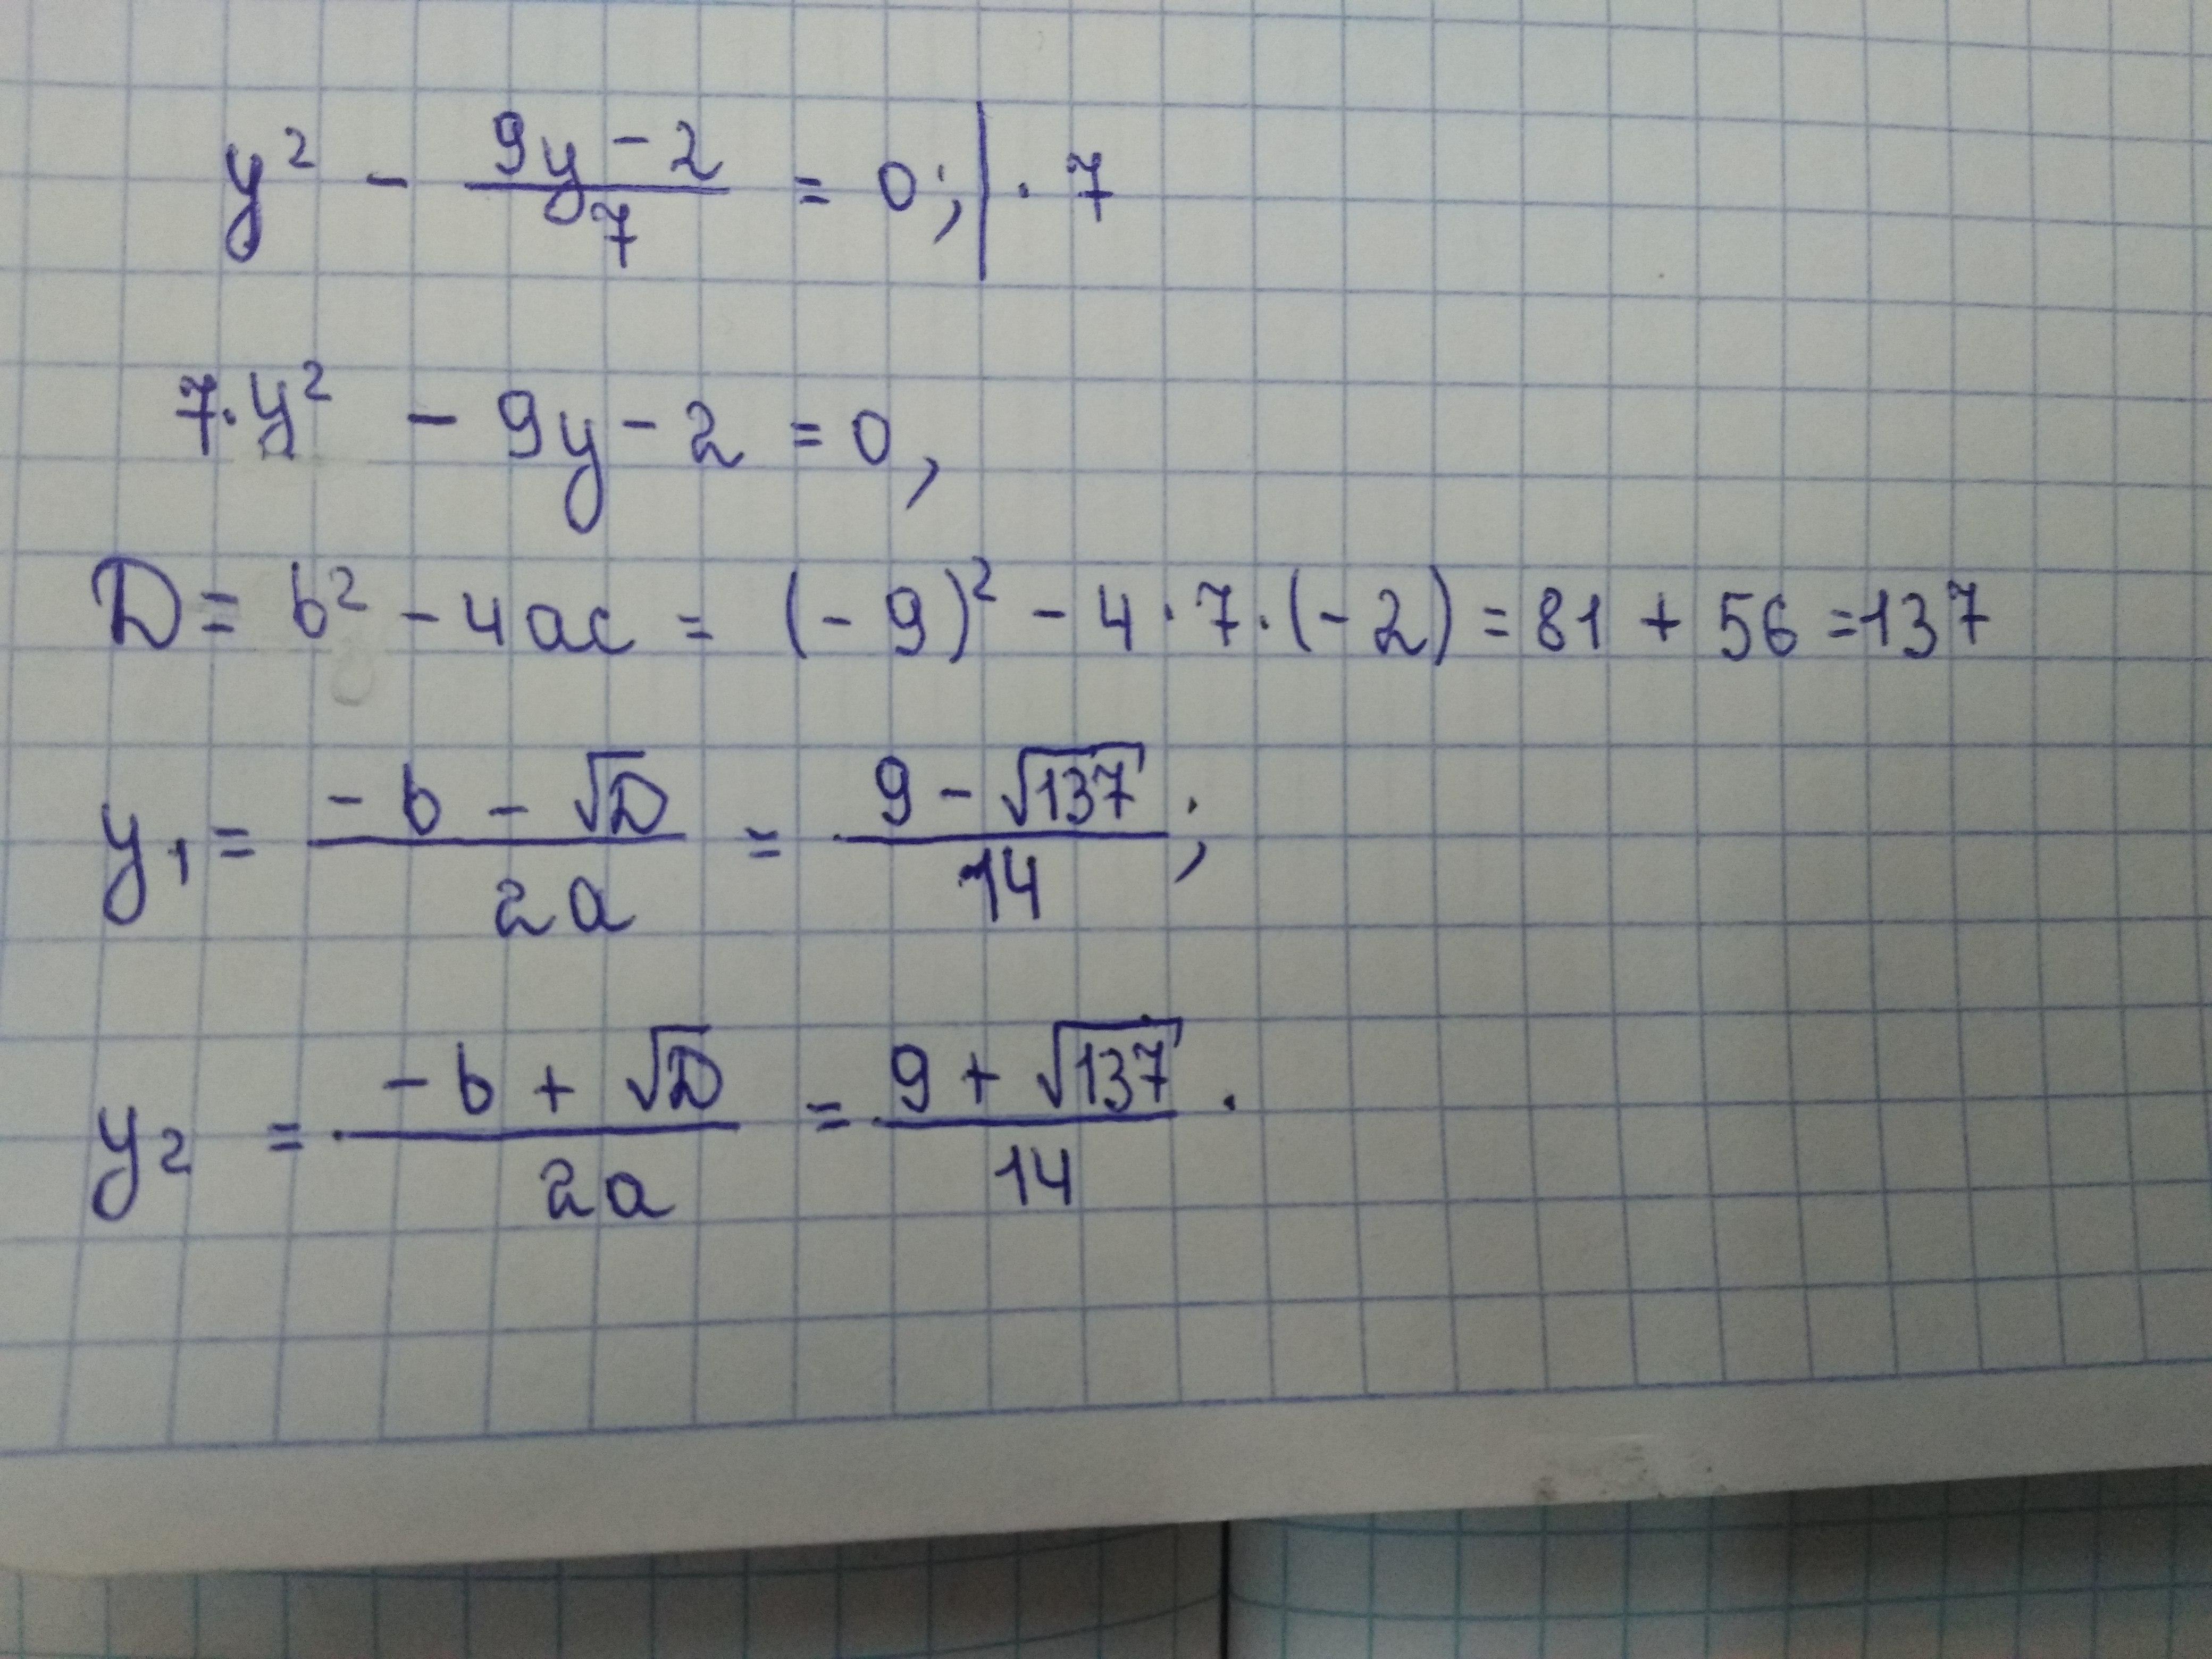 y² - (9y - 2)/7 = 0; | · 7
7·y² - 9y - 2 = 0,
D = b² - 4ac = (-9)² - 4·7·(-2) = 81 + 56 = 137
y₁ = (-b - √D)/2a = (9 - √137)/14;
y₂ = (-b + √D)/2a = (9 + √137)/14.